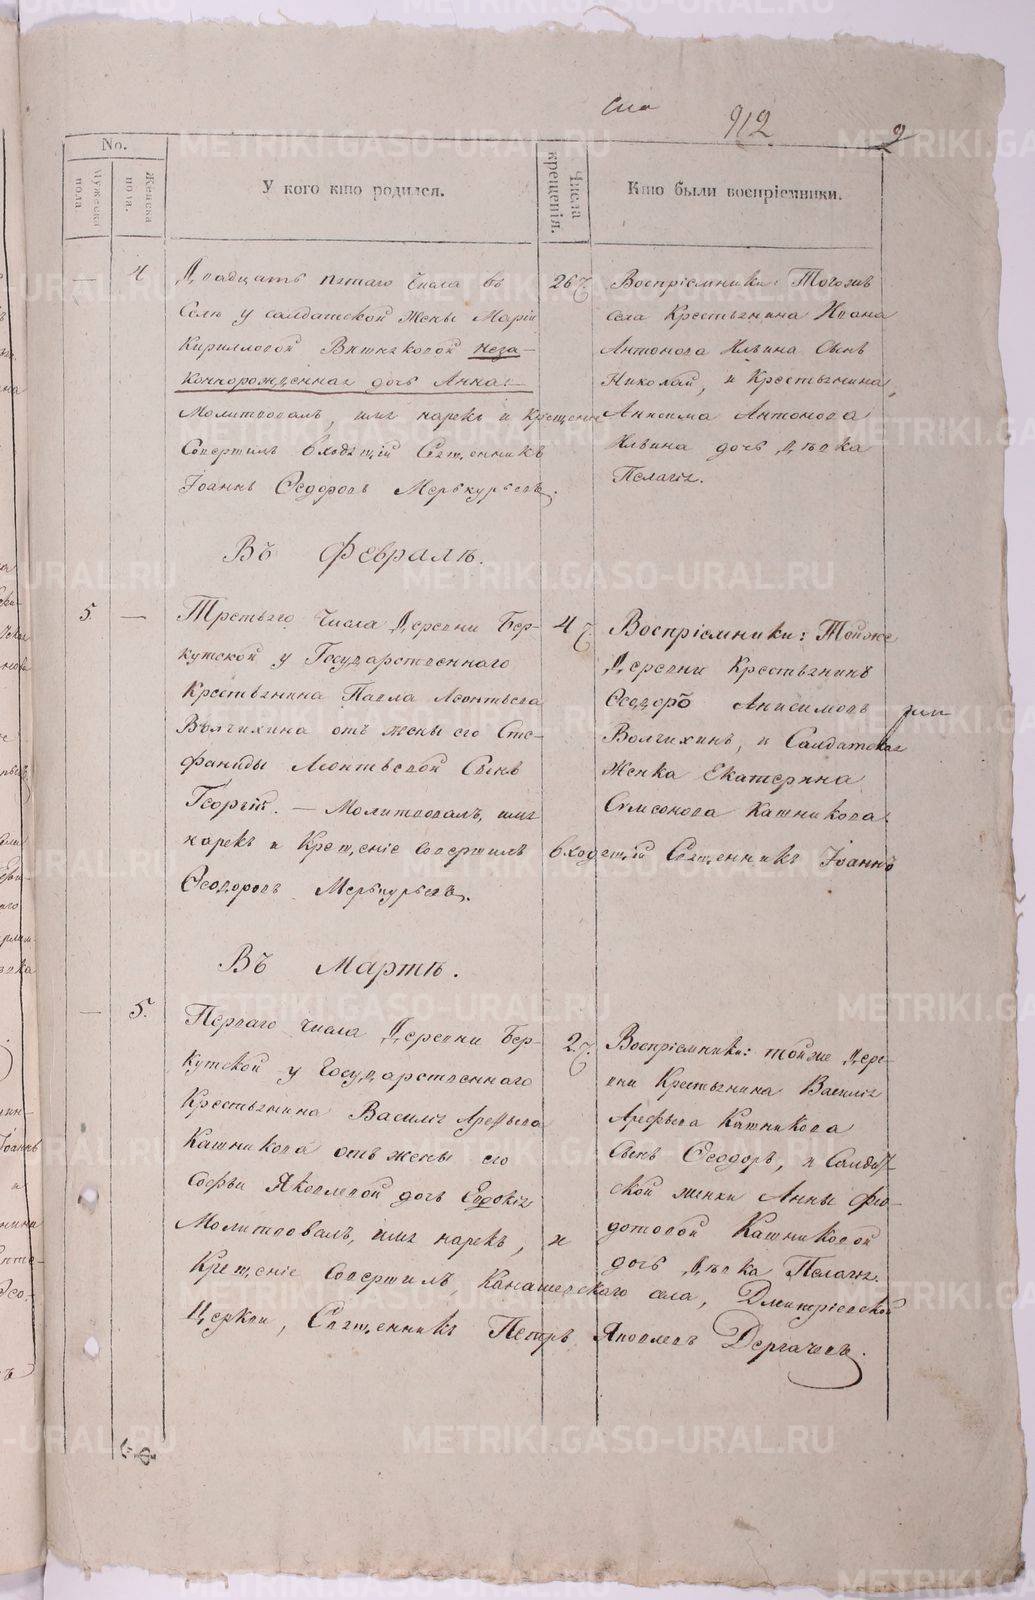 912.
2
No.
Мужеска пола
Женска пола.
У кого кто родился.
Числа крещенія.
Кто были воспріемники.
— 4
Двадцать пятаго Числа въ
Селѣ у солдатской Жены Маріи
Кирилловой Вятчковой неза-
коннорожденная дочь Анна:
Молитвовалъ, имя нарекъ и Крещеніе
Совертилъ входящій Священникъ
Іоаннъ Ѳедоровъ Меркурьевъ.
26.
Воспріемники: Тогожъ
села Крестьянина Ивана
Антонова Ильина Сынъ
Николай, и Крестьянина
Анисима Антонова
Ильина дочь дѣвка
Пелагія.
Въ Февралѣ.
5 —
Третьяго Числа Деревни Бер-
кутской у Государственнаго
Крестьянина Павла Леонтьева
Волчихина отъ жены его Сте-
фаниды Леонтьевой Сынъ
Георгій. — Молитвовалъ, имя
нарекъ и Крещеніе совертилъ входящій Священникъ Іоаннъ
Ѳеодоровъ Меркурьевъ.
4
Воспріемники: Тойже
Деревни Крестьянинъ
Ѳеодоръ Анисимовъ
Волчихинъ, и Салдатская
Женка Екатерина
Симеонова Кашникова.
Въ Мартѣ.
— 5.
Перваго Числа Деревни Бер-
кутской у Государственнаго
Крестьянина Василія Арефьева
Кашникова отъ жены его
Софьи Яковлевой дочь Евдокія
Молитвовалъ, имя нарекъ, и
Крещеніе совертилъ, Канашевскаго села, Дмитріевской
Церкви, Священникъ Петръ Яковлевъ Дергачевъ.
2.
Воспріемники: тойже Дере-
вни Крестьянина Василія
Арефьева Кашникова
Сынъ Ѳеодоръ, и Салдат-
ской женки Анны Фео-
дотовой Кашниковой
дочь дѣвка Пелагія.
METRIKI.GASO-URAL.RU